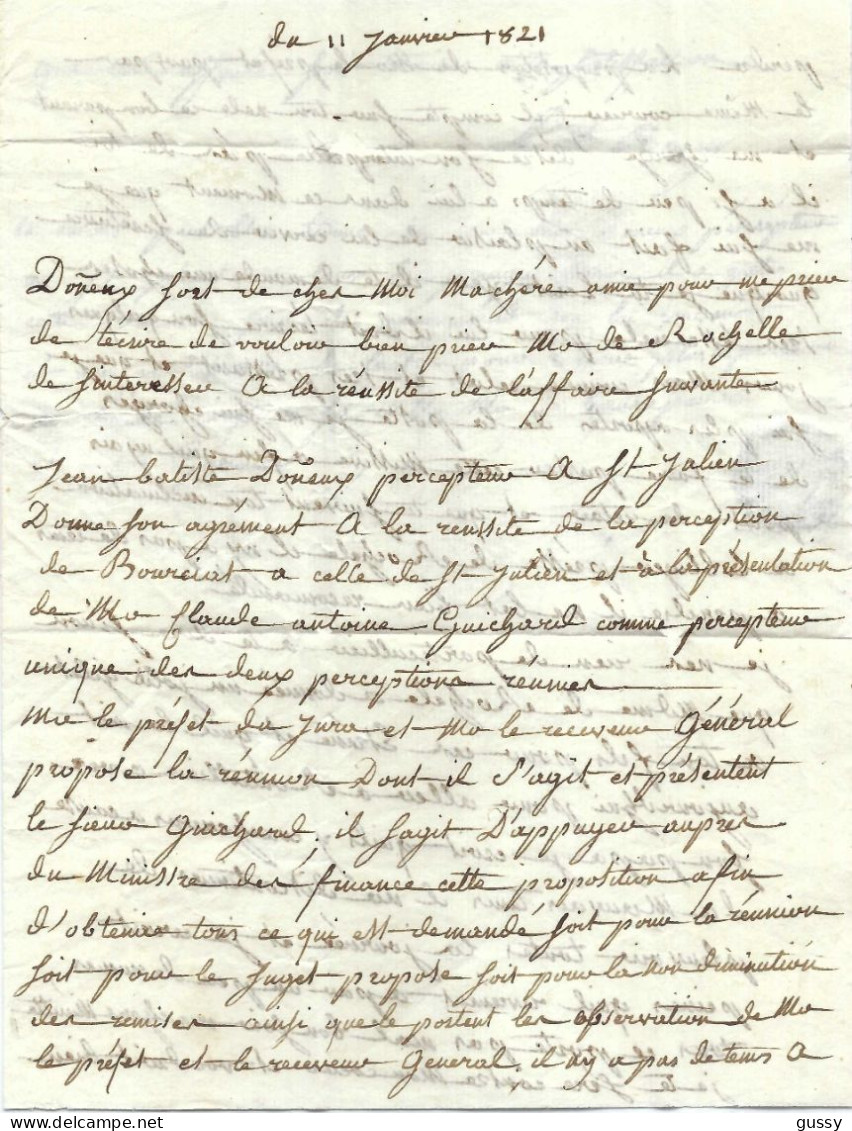 du 11 Janvier 1821
Doñeux sort de ches Moi Machéré amie pour me prier
de técrire de vouloir bien prier Mr de Rochelle
de sinteresser A la réussite de láffaire suivante
Jean batiste Doñeux percepteur A St Julien
Donne son agrément A la reussite de la perception
de Bourciat a celle de St Julien et à la présentation
de Mr Claude antoine Guichard comme percepteur
unique des deux perceptions réunies
Mr le préfet du Jura et Mr le receveur Général
propose la réunion Dont il s'agit et présentent
le sieur Guichard, il sagit D'appuyer aupres
du Ministre des finance cette proposition afin
d'obtenir tous ce qui est demandé soit pour la réunion
soit pour le Suget propose soit pour la non diminution
des remises ainsi que le portent les observation de Mr
le préfet et le receveur General, il ay a pas de tems A
gussy